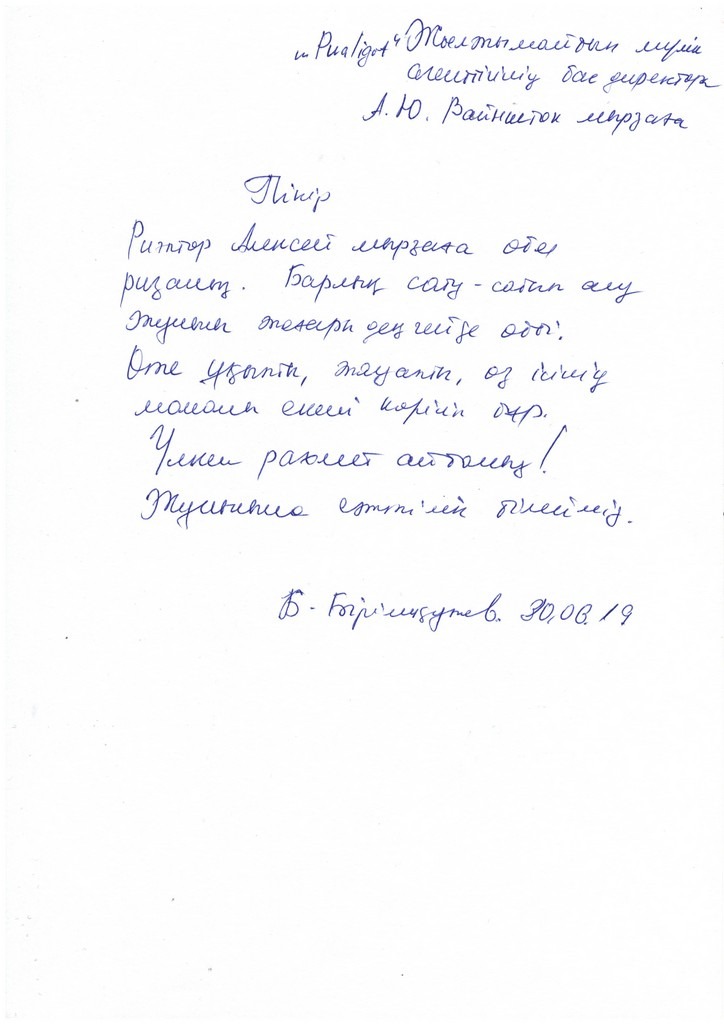 Жылжымайтын мүлік
агенттігінің бас директоры
А.Ю. Вайншток мырзаға
Пікір
Риэлтор Алексей мырзаға өте
ризамыз. Барлық сату-сатып алу
жұмысы жоғары деңгейде өтті.
Өте ұқыпты, жауапты, өз ісінің
маманы екені көрініп тұр.
Үлкен рахмет айтамыз!
Жұмысына сәттілік тілейміз.
Б. 30.06.19